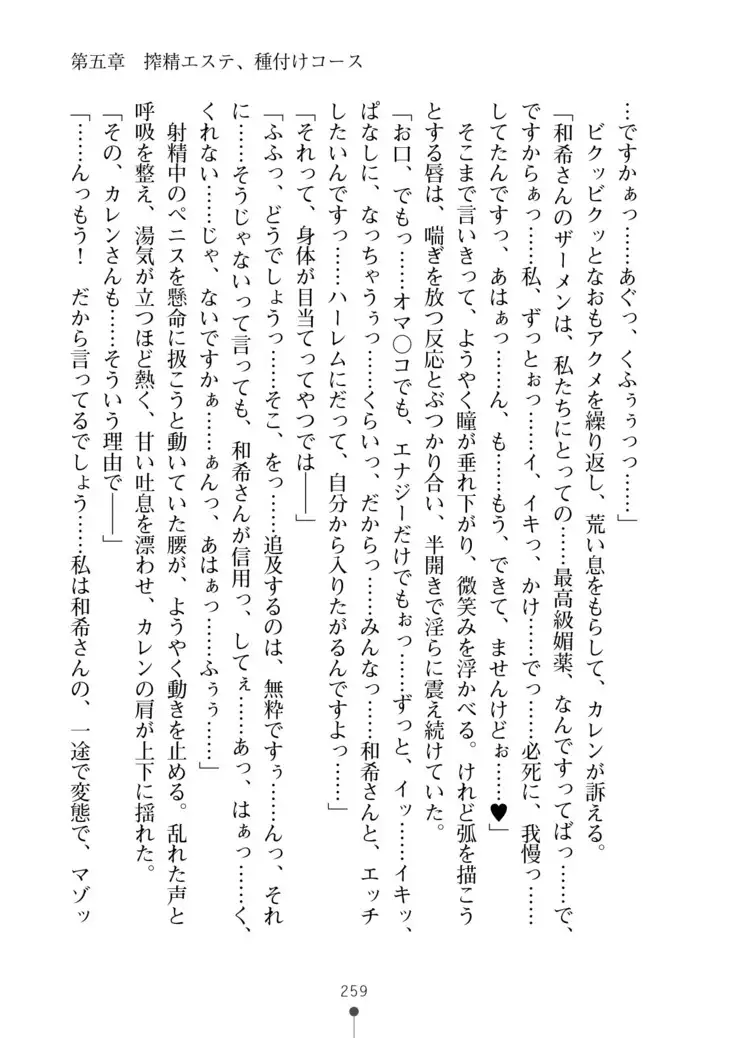 第五章　搾精エステ、種付けコース
…ですかぁっ……あぐっ、くふぅぅっっ……」
　ビクッビクッとなおもアクメを繰り返し、荒い息をもらして、カレンが訴える。
「和希さんのザーメンは、私たちにとっての……最高級媚薬、なんですってばっ……で、
ですからぁっ……私、ずっとぉっ……イ、イキっ、かけ……でっ……必死に、我慢っ……
してたんですっ、あはぁっ……ん、も……もう、できて、ませんけどぉ……♥」
　そこまで言いきって、ようやく瞳が垂れ下がり、微笑みを浮かべる。けれど弧を描こう
とする唇は、喘ぎを放つ反応とぶつかり合い、半開きで淫らに震え続けていた。
「お口、でもっ……オマ〇コでも、エナジーだけでもぉっ……ずっと、イッ……イキッ、
ぱなしに、なっちゃうぅっ……くらいっ、だからっ……みんなっ……和希さんと、エッチ
したいんですっ……ハーレムにだって、自分から入りたがるんですよっ……」
「それって、身体が目当てってやつでは――」
「ふふっ、どうでしょうっ……そこ、をっ……追及するのは、無粋ですぅ……んっ、それ
に……そうじゃないって言っても、和希さんが信用っ、してぇ……あっ、はぁっ……く、
くれない……じゃ、ないですかぁ……ぁんっ、あはぁっ……ふぅぅ……」
　射精中のペニスを懸命に扱こうと動いていた腰が、ようやく動きを止める。乱れた声と
呼吸を整え、湯気が立つほど熱く、甘い吐息を漂わせ、カレンの肩が上下に揺れた。
「その、カレンさんも……そういう理由で――」
「……んっもう！　だから言ってるでしょう……私は和希さんの、一途で変態で、マゾッ
259